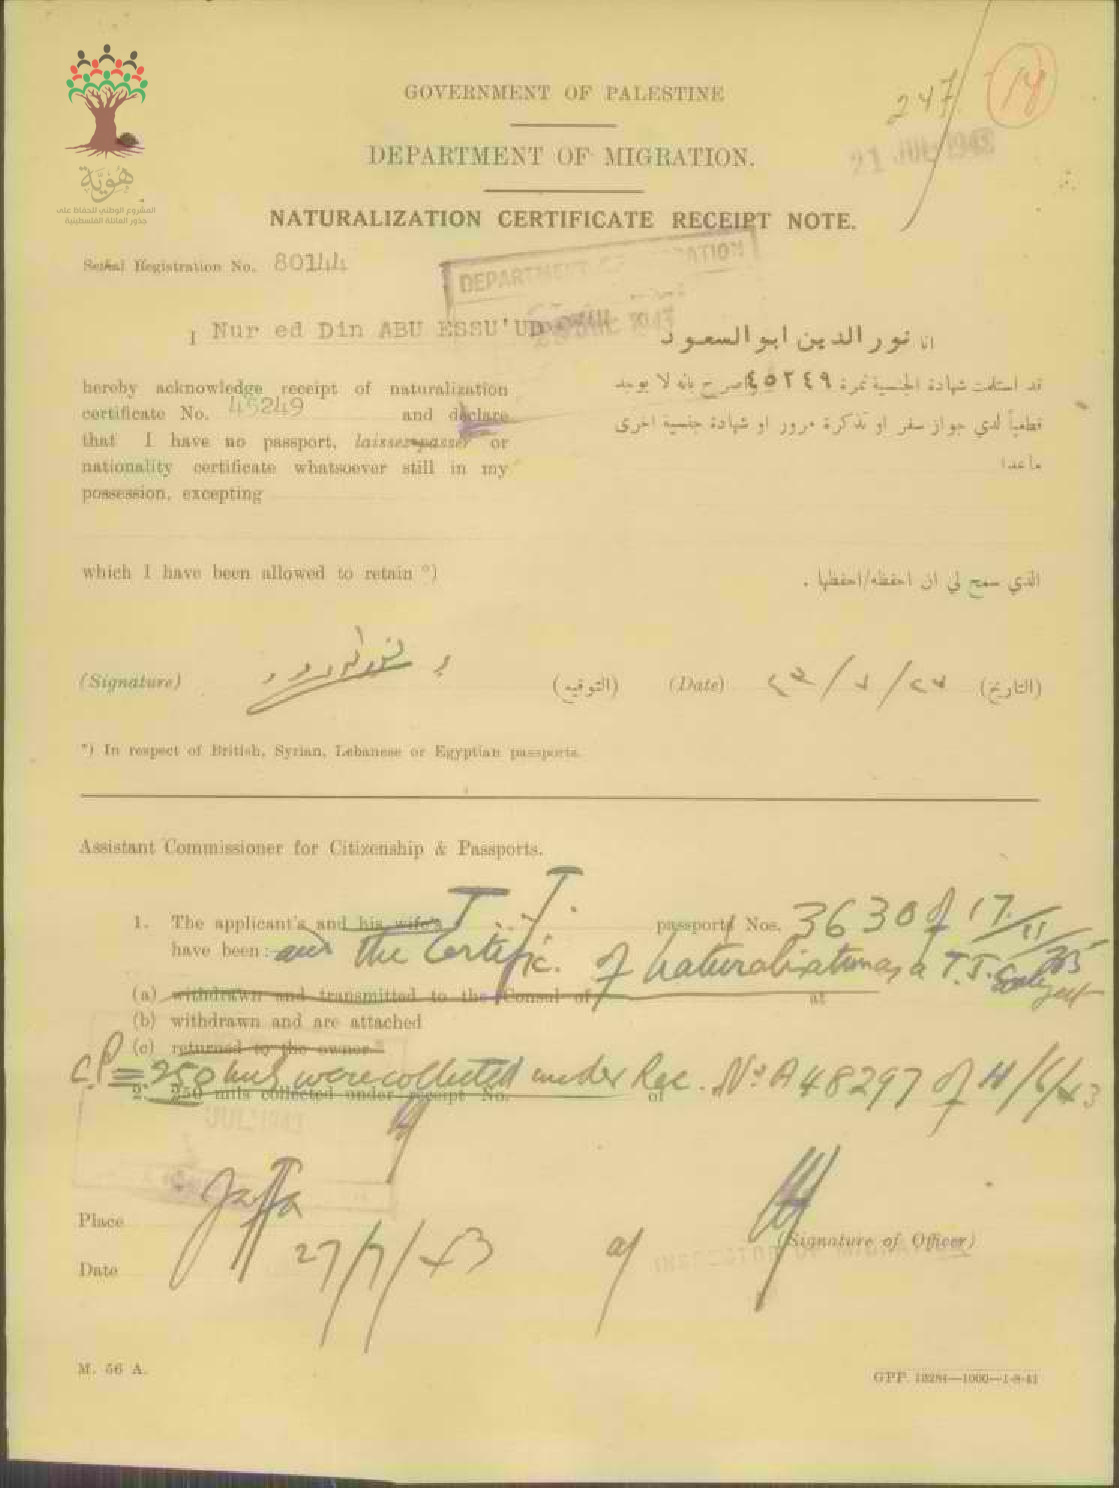 هوية
المشروع الوطني للحفاظ على
جذور العائلة الفلسطينية
247
14
GOVERNMENT OF PALESTINE
21 JUL 1943
DEPARTMENT OF MIGRATION.
NATURALIZATION CERTIFICATE RECEIPT NOTE.
Serial Registration No. 80144
DEPARTMENT OF MIGRATION
JUL 1943
I Nur ed Din ABU ESSU'UD
انا نور الدين ابو السعود
hereby acknowledge receipt of naturalization
certificate No. 45249 and declare
that I have no passport, laisser-passer or
nationality certificate whatsoever still in my
possession, excepting
قد استلمت شهادة الجنسية نمرة ٤٥٢٤٩ واصرح بانه لا يوجد
قطعياً لدي جواز سفر او تذكرة مرور او شهادة جنسية اخرى
ما عدا
which I have been allowed to retain *)
الذي سمح لي ان احفظه/احفظها .
(Signature) (التوقيع) (Date) (التاريخ)
*) In respect of British, Syrian, Lebanese or Egyptian passports.
Assistant Commissioner for Citizenship & Passports.
1. The applicant's and his wife's T.J. passports Nos. 3630 of 17/11/35
have been: and the Certific. of naturalization as a T.J. Subject
(a) withdrawn and transmitted to the Consul of at
(b) withdrawn and are attached
(c) returned to the owner.*
C.P. = 250 mils were collected under Rec. No A 48297 of 11/6/43
2. 250 mils collected under receipt No. of
JUL 1943
Place Jaffa
(Signature of Officer)
INSPECTOR OF MIGRATION
Date 27/7/43
M. 56 A.
GPP. 13284—1000—1-8-41